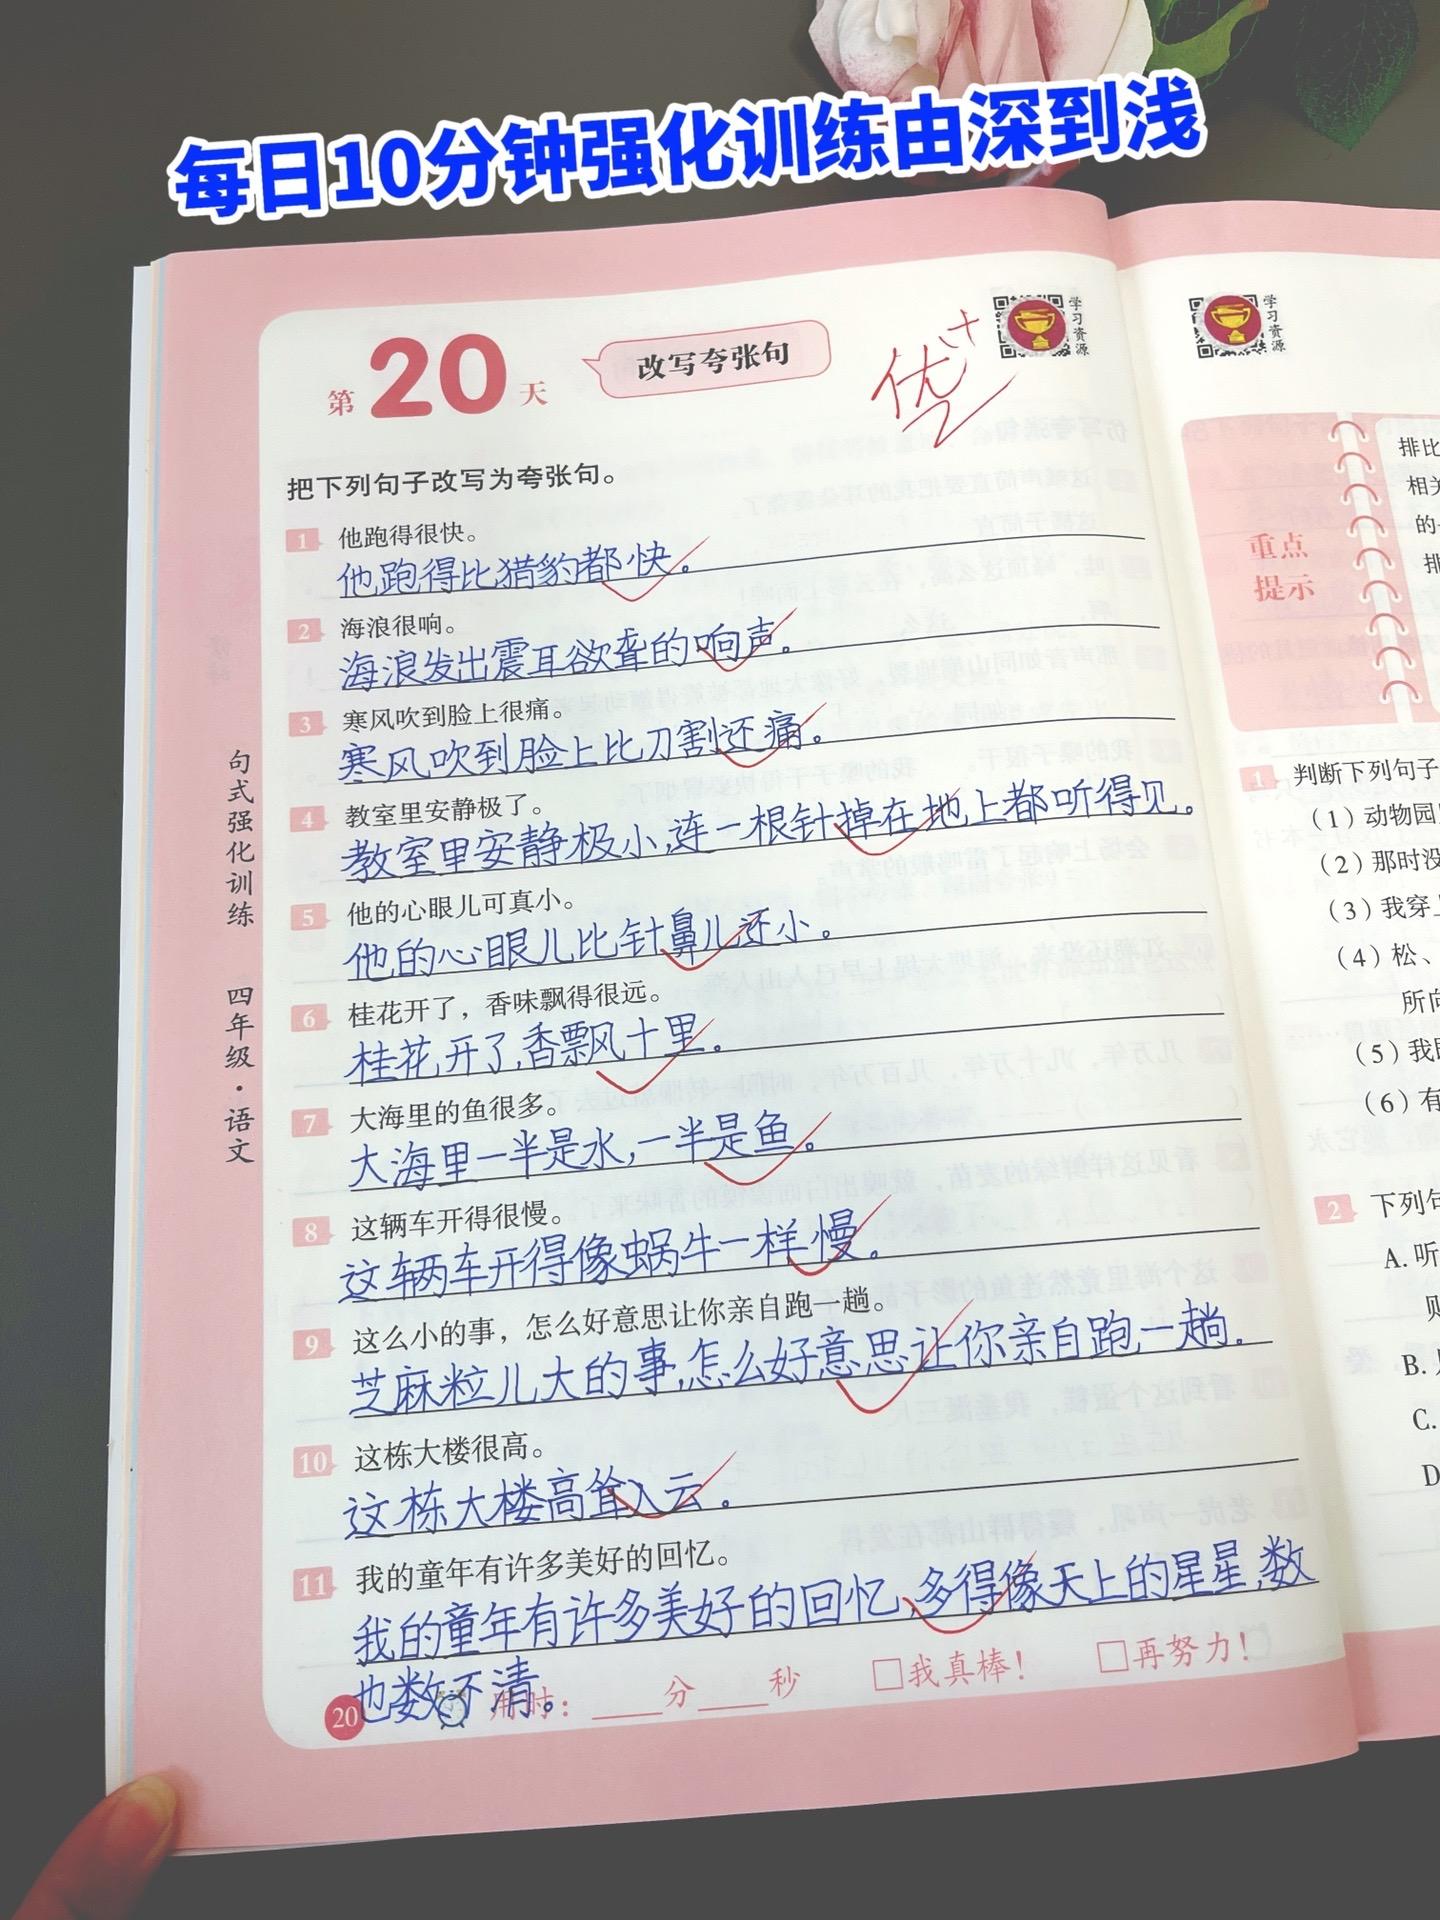 每日10分钟强化训练由深到浅
第20天
改写夸张句
优+
学习资源
学习资源
把下列句子改写为夸张句。
1 他跑得很快。
他跑得比猎豹都快。
2 海浪很响。
海浪发出震耳欲聋的响声。
3 寒风吹到脸上很痛。
寒风吹到脸上比刀割还痛。
4 教室里安静极了。
教室里安静极小,连一根针掉在地上都听得见。
5 他的心眼儿可真小。
他的心眼儿比针鼻儿还小。
6 桂花开了，香味飘得很远。
桂花开了,香飘十里。
7 大海里的鱼很多。
大海里一半是水,一半是鱼。
8 这辆车开得很慢。
这辆车开得像蜗牛一样慢。
9 这么小的事，怎么好意思让你亲自跑一趟。
芝麻粒儿大的事,怎么好意思让你亲自跑一趟。
10 这栋大楼很高。
这栋大楼高耸入云。
11 我的童年有许多美好的回忆。
我的童年有许多美好的回忆,多得像天上的星星,数
也数不清。
20 用时：____分____秒 □我真棒！ □再努力！
句式强化训练 四年级·语文
重点
提示
排比
相关
的
排
1 判断下列句子
（1）动物园
（2）那时没
（3）我穿上
（4）松、
所向
（5）我
（6）有
2 下列句
A. 听
B.
C.
D